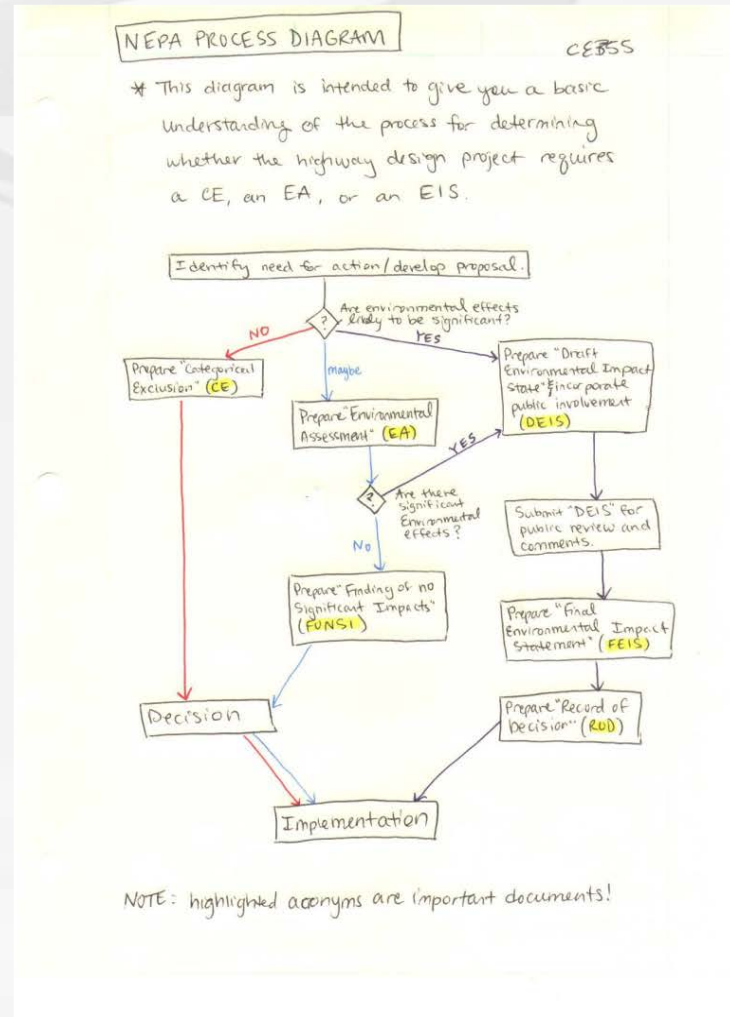 NEPA PROCESS DIAGRAM
CE355
* This diagram is intended to give you a basic
understanding of the process for determining
whether the highway design project requires
a CE, an EA, or an EIS.
Identify need for action/develop proposal.
?
Are environmental effects
likely to be significant?
NO
YES
maybe
Prepare "Categorical
Exclusion" (CE)
Prepare "Draft
Environmental Impact
State" & incorporate
public involvement
(DEIS)
Prepare "Environmental
Assessment" (EA)
YES
?
Are there
significant
Environmental
effects?
No
Submit "DEIS" for
public review and
comments.
Prepare "Finding of no
Significant Impacts"
(FONSI)
Prepare "Final
Environmental Impact
Statement" (FEIS)
Decision
Prepare "Record of
Decision" (ROD)
Implementation
NOTE: highlighted acronyms are important documents!